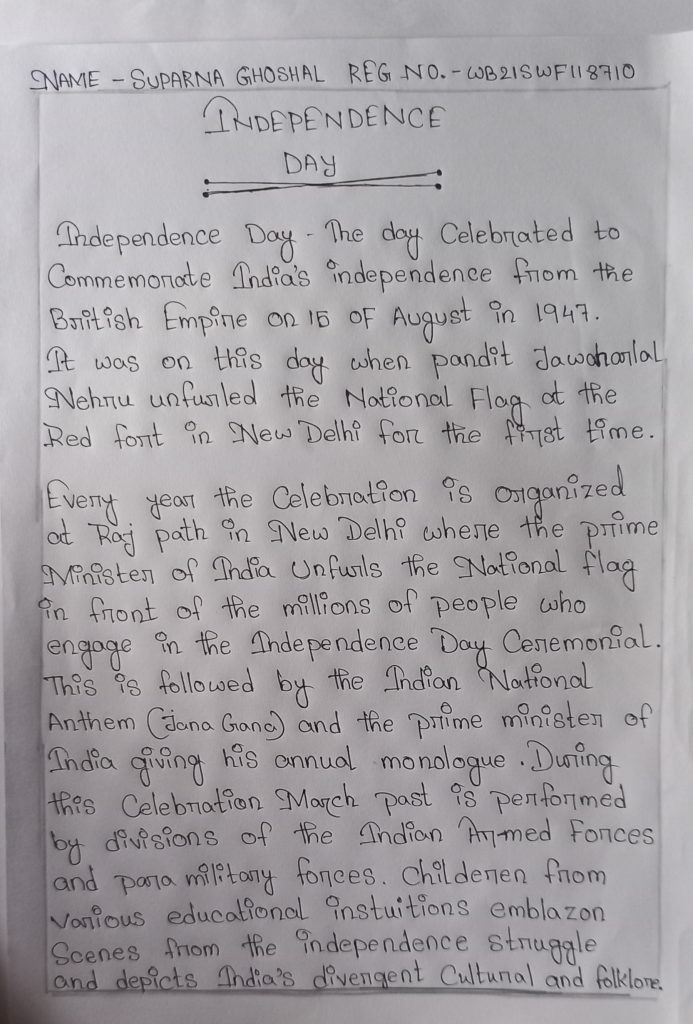 NAME - SUPARNA GHOSHAL REG NO. - WB21SWF118710
INDEPENDENCE
DAY
Independence Day - The day Celebrated to
Commemorate India's independence from the
British Empire on 15 of August in 1947.
It was on this day when pandit Jawoharlal
Nehru unfurled the National Flag at the
Red fort in New Delhi for the first time.
Every year the Celebration is organized
at Raj path in New Delhi where the prime
Minister of India Unfurls the National flag
in front of the millions of people who
engage in the Independence Day Ceremonial.
This is followed by the Indian National
Anthem (Jana Gana) and the prime minister of
India giving his annual monologue. During
this Celebration March past is performed
by divisions of the Indian Armed Forces
and para military forces. Childeren from
various educational instuitions emblazon
Scenes from the independence struggle
and depicts India's divergent Cultural and folklore.